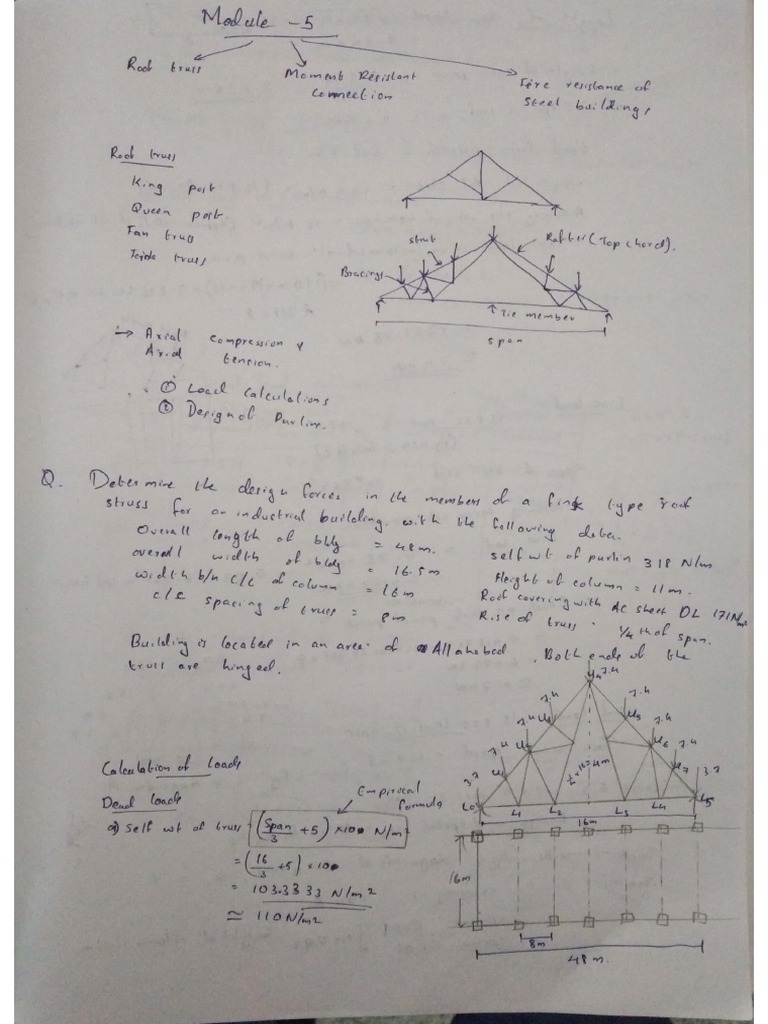 Module - 5
Roof truss
Moment Resistant
Connection
Fire resistance of
Steel buildings
Roof truss
King post
Queen post
Fan truss
truss
strut
Rafter (Top chord).
Bracings
Tie member
span
→ Axial compression &
Axial tension.
① Load Calculations
② Design of Purlin.
Q. Determine the design forces in the members of a fink type roof
struss for an industrial building with the following data.
Overall length of bldg = 48m.
overall width of bldg = 16.5m
width b/n c/c of column = 16m
c/c spacing of truss = 8m
self wt of purlin 318 N/m
Height of column = 11m.
Roof covering with AC sheet DL 171N/m²
Rise of truss = 1/4 th of span.
Building is located in an area of Allahabad. Both ends of the
truss are hinged.
U4 7.4
7.4 7.4
U3 U5
7.4 7.4
U2 U6
7.4 7.4
U1 U7
3.7 3.7
¼×16=4m
L0 L1 L2 L3 L4 L5
16m
Calculation of Loads
Dead loads
Empirical
formula
a) Self wt of truss (Span/3 + 5) × 100 N/m
= (16/3 + 5) × 100
= 103.3333 N/m2
≃ 110N/m2
16m
8m
48 m.